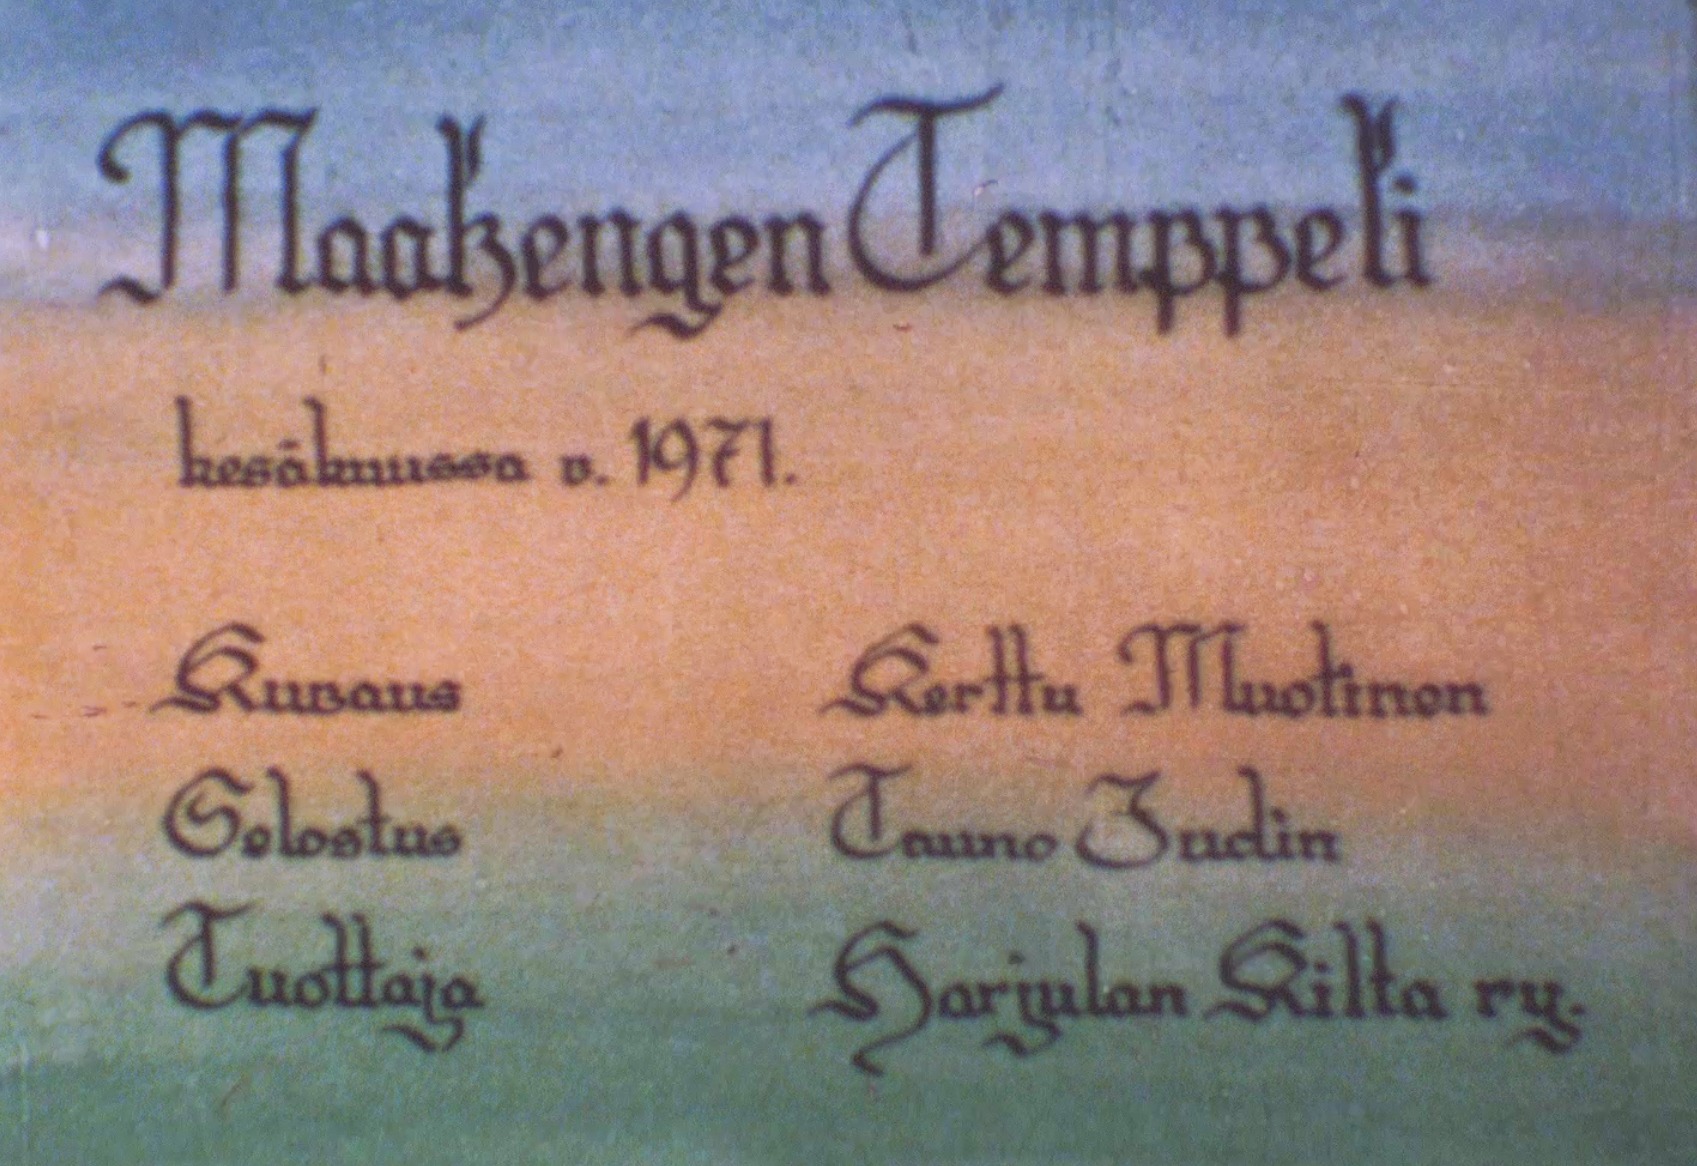 Maahengen Temppeli
kesäkuussa v. 1971.
Kuvaus Kerttu Muotinen
Selostus Tauno Judin
Tuottaja Harjulan Kilta ry.